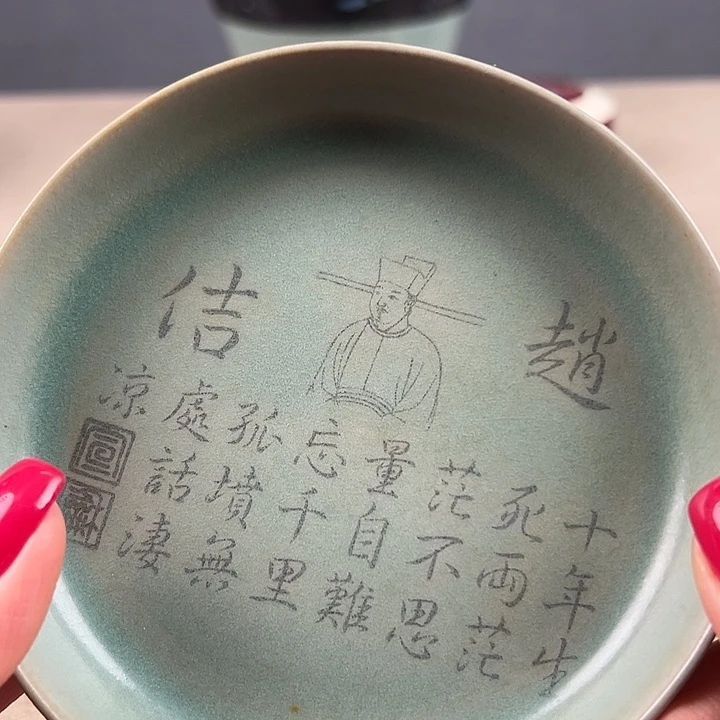 趙
佶
十年生
死両茫
茫不思
量自難
忘千里
孤墳無
處話淒
涼
宣